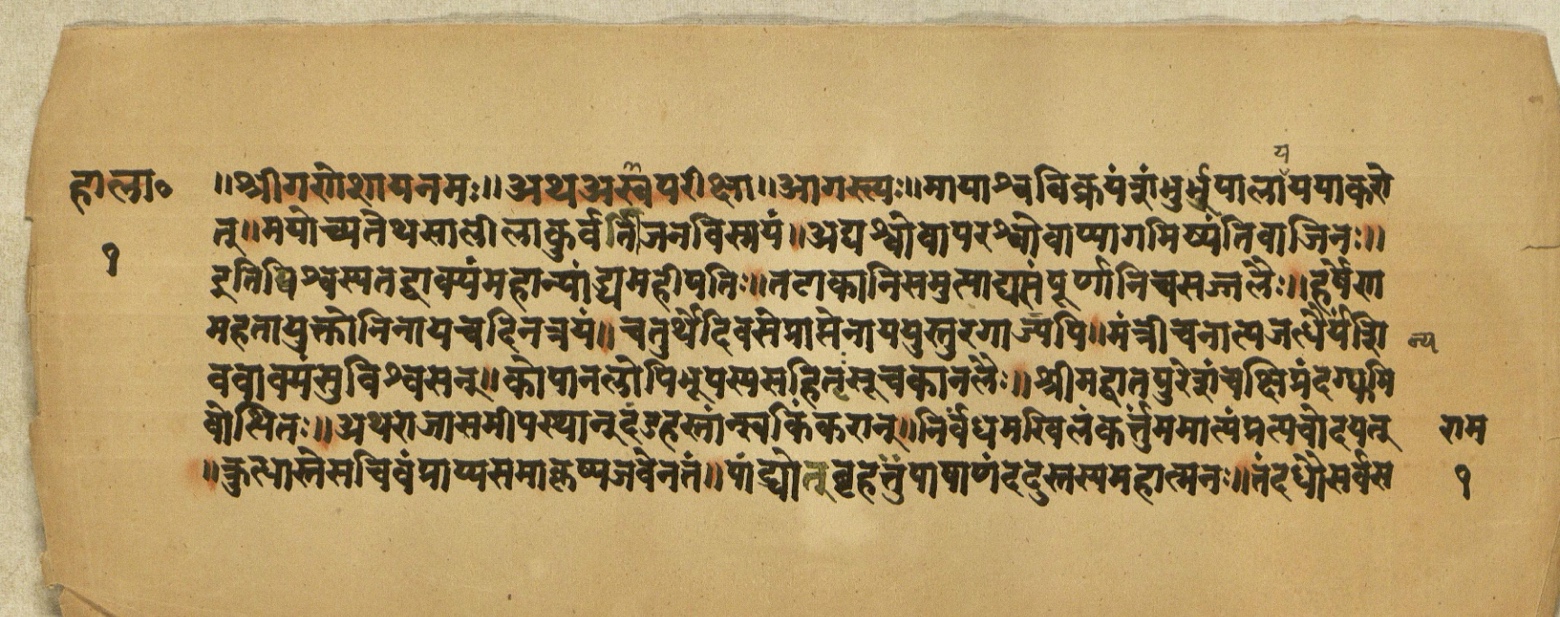 हाला० ॥श्रीगणेशायनमः॥ अथअस्वपरीक्षा॥आगस्त्यः॥मायाश्वविक्रयं
तू॥मयोच्यतेथसालीलाकुर्वतीजनविस्मयं॥अद्यश्वोवापरश्वोवाप्यागमिष्यंतिवाजिनः॥
१
इतिविश्वस्यतद्वाक्यंमहान्पांड्यमहीपतिः॥तटाकानिसमुत्पाद्यसंपूर्णानिचसज्जलैः॥हर्षेण
महतायुक्तोनिनायचदिनत्रयं॥चतुर्थेदिवसेप्राप्तेनाययुस्तुरगाज्यपि॥मंत्रीचनात्यजत्धैर्यंशि न्य
ववाक्यसुविश्वसन्॥कोपानलोपिभूपस्यसहितंसूचकानलैः॥श्रीमद्वातपुरेशंचक्षिप्रंदग्धुमि
वोत्थितः॥अथराजासमीपस्थानुदंडहस्तांन्स्वकिंकरान्॥निर्बंधमखिलंकर्त्तुममात्यंप्रत्यचोदयन् राम
॥क्रुत्धास्तेसचिवंप्राप्यसमाकृष्यजवेनतं॥ बृहत्तुंपाषाणंददुस्तस्यमहात्मनः॥तंदधौसर्वस १